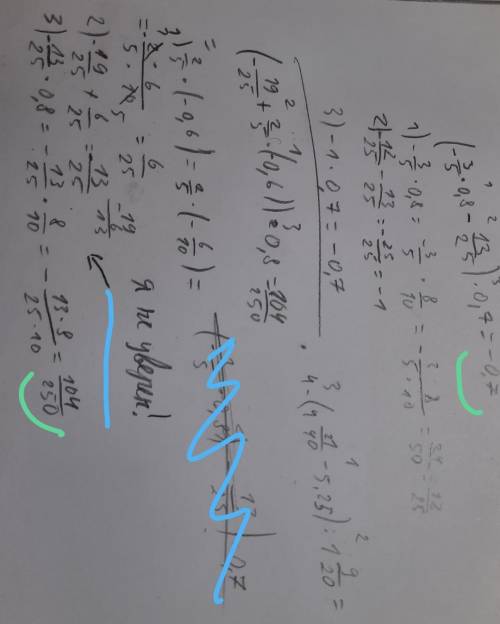 (-3/5 · 0,8 - 13/25) · 0,7 = -0,7
1) -3/5 · 0,8 = -3/5 · 8/10 = - 3 · 8/5 · 10 = 24/50 = 12/25
2) -12/25 - 13/25 = -25/25 = -1
3) -1 · 0,7 = -0,7
(-19/25 + 2/5 (-0,6)) · 0,8 = 104/250
1) 2/5 · (-0,6) = 2/5 · (-6/10) =
= 2 · 6/5 · 10 5 = 6/25
2) -19/25 + 6/25 = 13/25
-19
6
13
Я не уверен!
3) -13/25 · 0,8 = - 13/25 · 8/10 = - 13 · 8/25 · 10 = 104/250
4 - (4 21/40 - 5,25) : 1 9/20 =